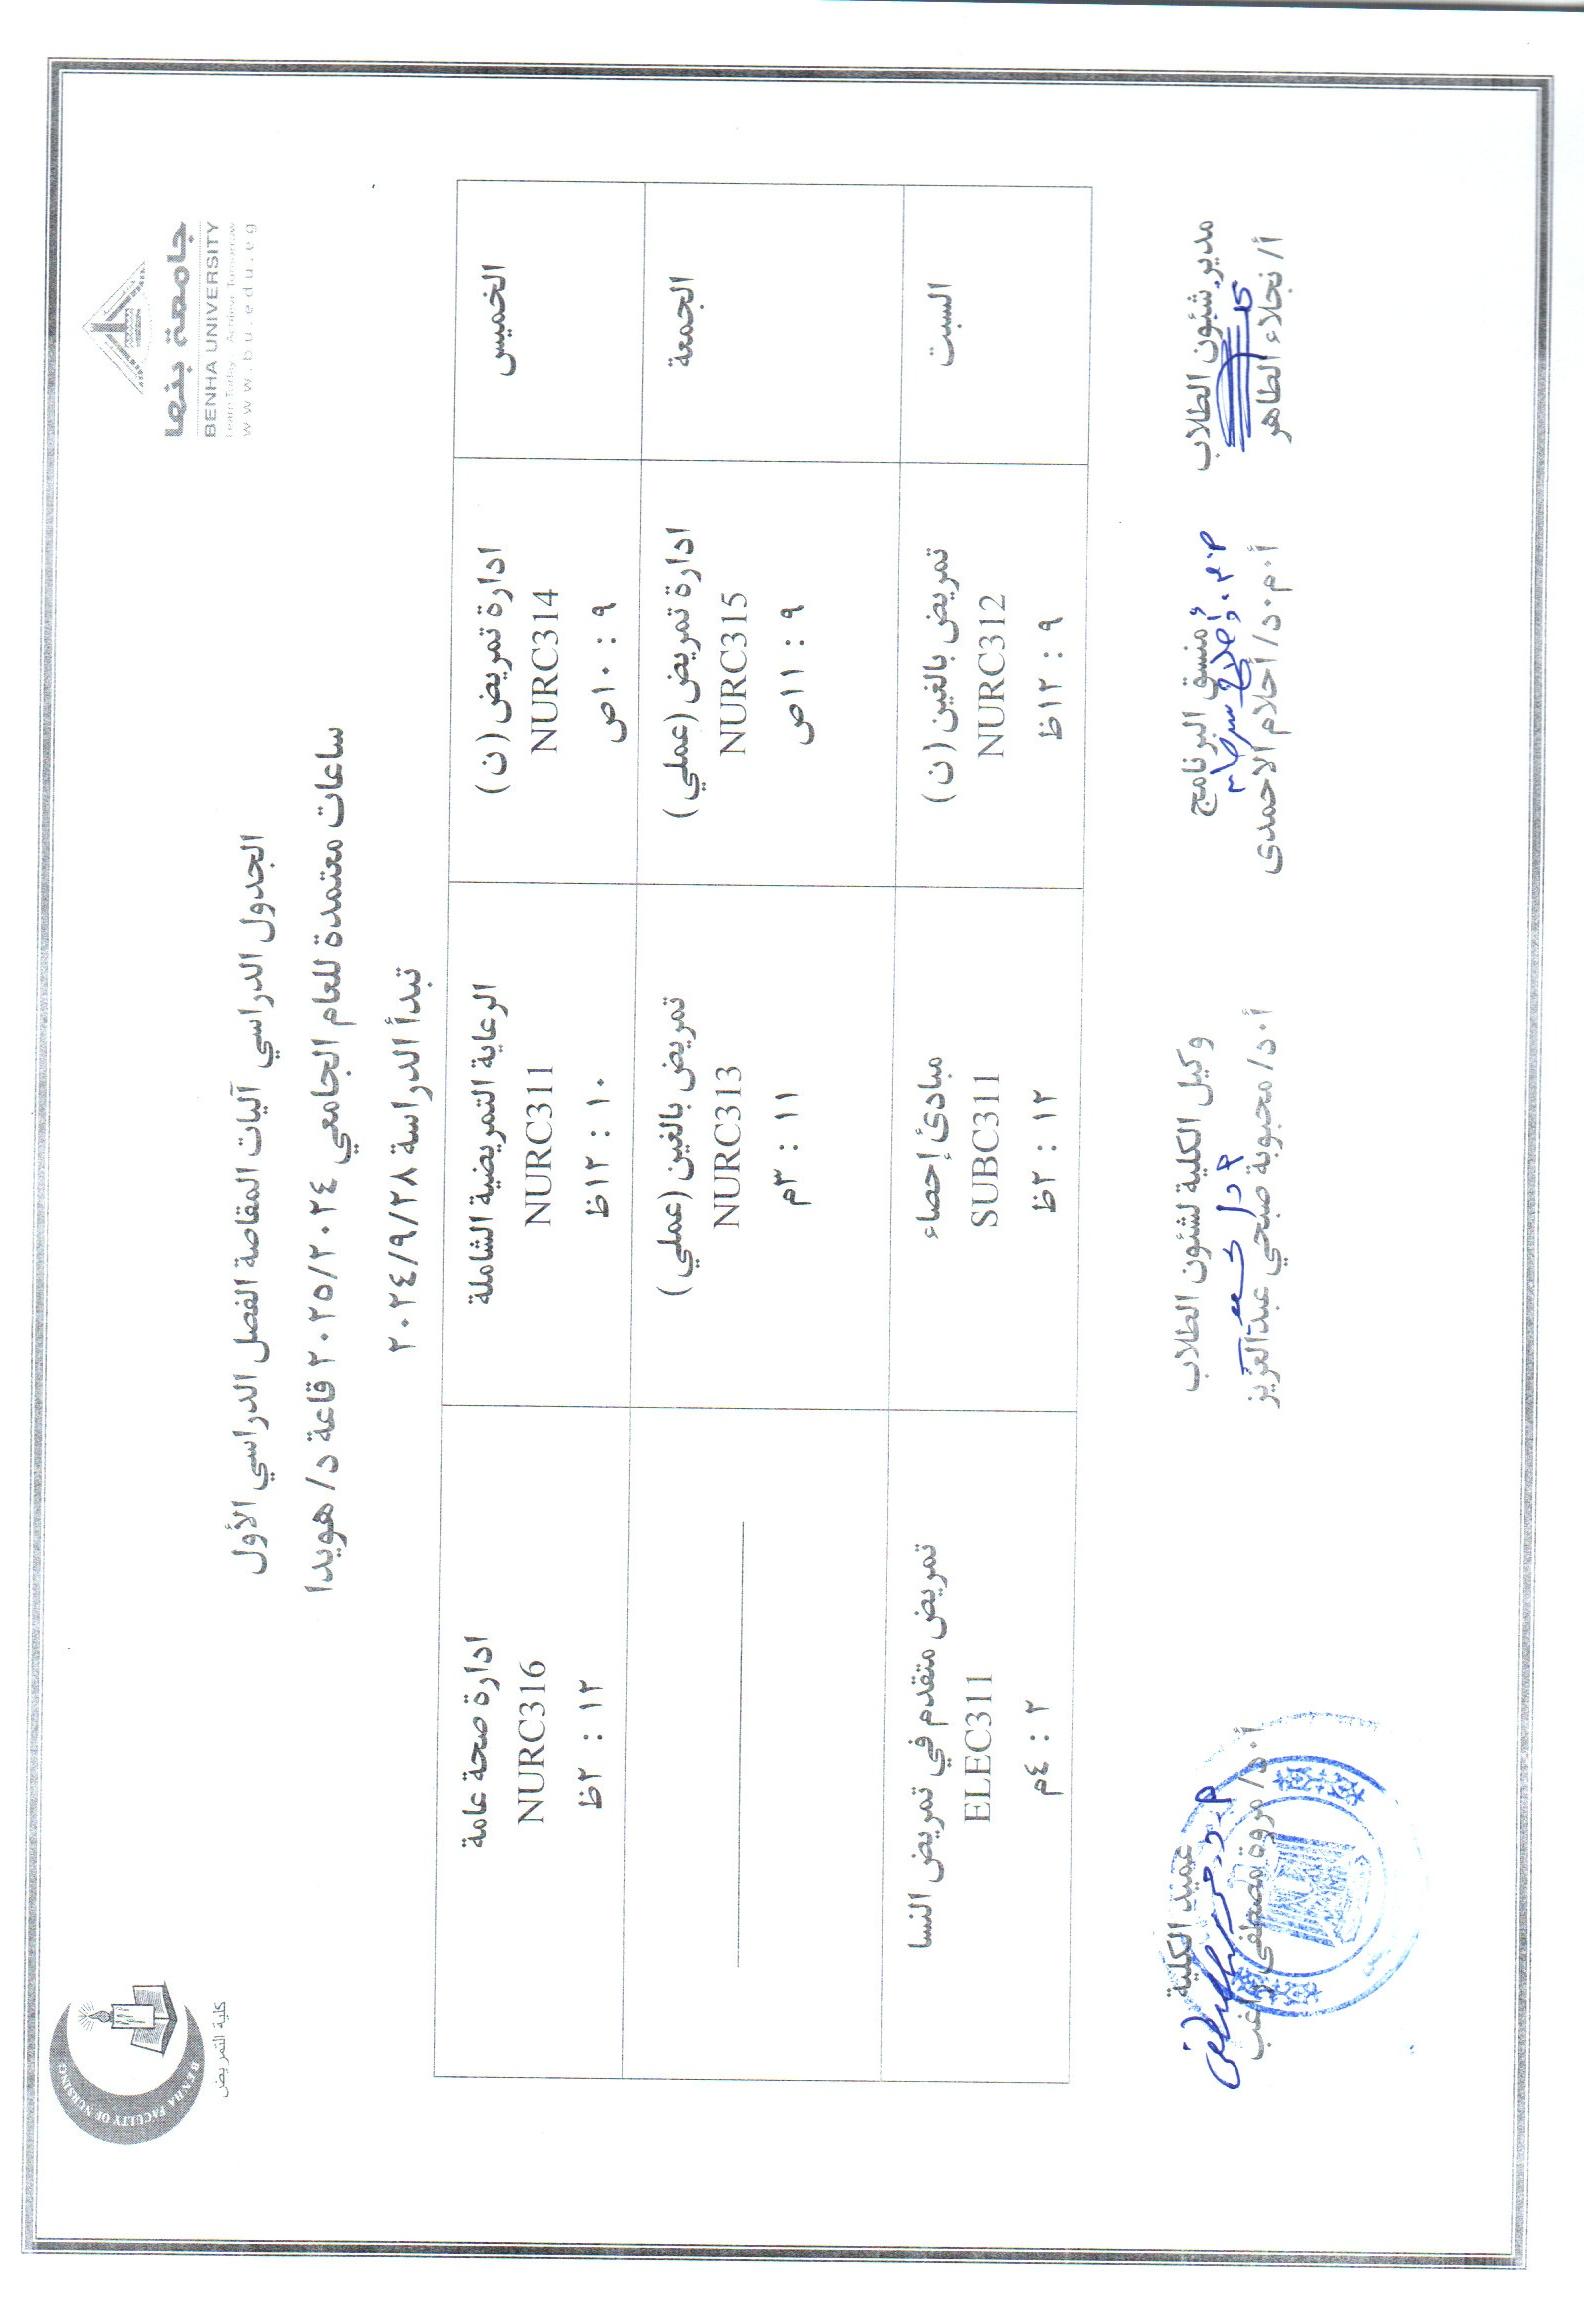 BENHA FACULTY OF NURSING
كلية التمريض
جامعة بنها
BENHA UNIVERSITY
Learn Today .. Achieve Tomorrow
www.bu.edu.eg
الجدول الدراسي آليات المقاصة الفصل الدراسي الأول
ساعات معتمدة للعام الجامعي ٢٠٢٥/٢٠٢٤ قاعة د/ هويدا
تبدأ الدراسة ٢٠٢٤/٩/٢٨
الخميس
ادارة تمريض ( ن )
NURC314
٩ : ١٠ص
الرعاية التمريضية الشاملة
NURC311
١٠ : ١٢ظ
ادارة صحة عامة
NURC316
١٢ : ٢ظ
الجمعة
ادارة تمريض (عملي )
NURC315
٩ : ١١ص
تمريض بالغين (عملي )
NURC313
١١ : ٣م
السبت
تمريض بالغين ( ن )
NURC312
٩ : ١٢ظ
مبادئ إحصاء
SUBC311
١٢ : ٢ظ
تمريض متقدم في تمريض النسا
ELEC311
٢ : ٤م
مدير شئون الطلاب
أ/ نجلاء الطاهر
منسق البرنامج
أ٠م٠د/ أحلام الاحمدى
وكيل الكلية لشئون الطلاب
أ٠د/ محبوبة صبحي عبدالعزيز
عميد الكلية
أ٠د/ مروة مصطفى راغب